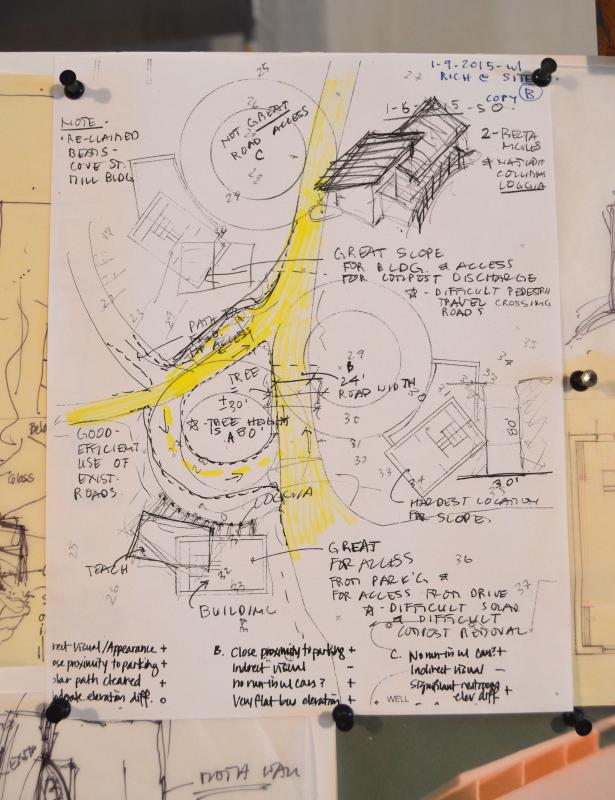 1-9-2015-w/
RICH @ SITE
COPY B
1-6-2015-SO
NOTE-
• RE-CLAIMED
BEAMS-
COVE ST.
MILL BLDG
25
NOT GREAT
ROAD ACCESS
C
28
29
2-
LOGGIA
GREAT SLOPE
FOR BLDG. & ACCESS
FOR COMPOST DISCHARGE
☆- DIFFICULT
TRAVEL CROSSING
ROADS
PATH
TREE
±30'
☆-TREE HEIGHT
IS 80'
A
29
B
24'
ROAD WIDTH
30
31
32
80'
30'
GOOD-
EFFICIENT
USE OF
EXIST.
ROADS
LOGGIA
HARDEST LOCATION
FOR SLOPE.
GREAT
FOR ACCESS
FROM PARK'G &
FOR ACCESS FROM DRIVE
☆- DIFFICULT SOLAR
& DIFFICULT
COMPOST REMOVAL
36
37
26
32
TEACH
BUILDING
rect Visual/Appearance +
ose proximity to parking +
olar path cleared +
elevation diff. o
B. Close proximity to parking +
Indirect visual –
no run-in w/ cars? +
Very flat low elevation +
C. No run-in w/ car? +
Indirect visual –
Significant
elev diff +
WELL